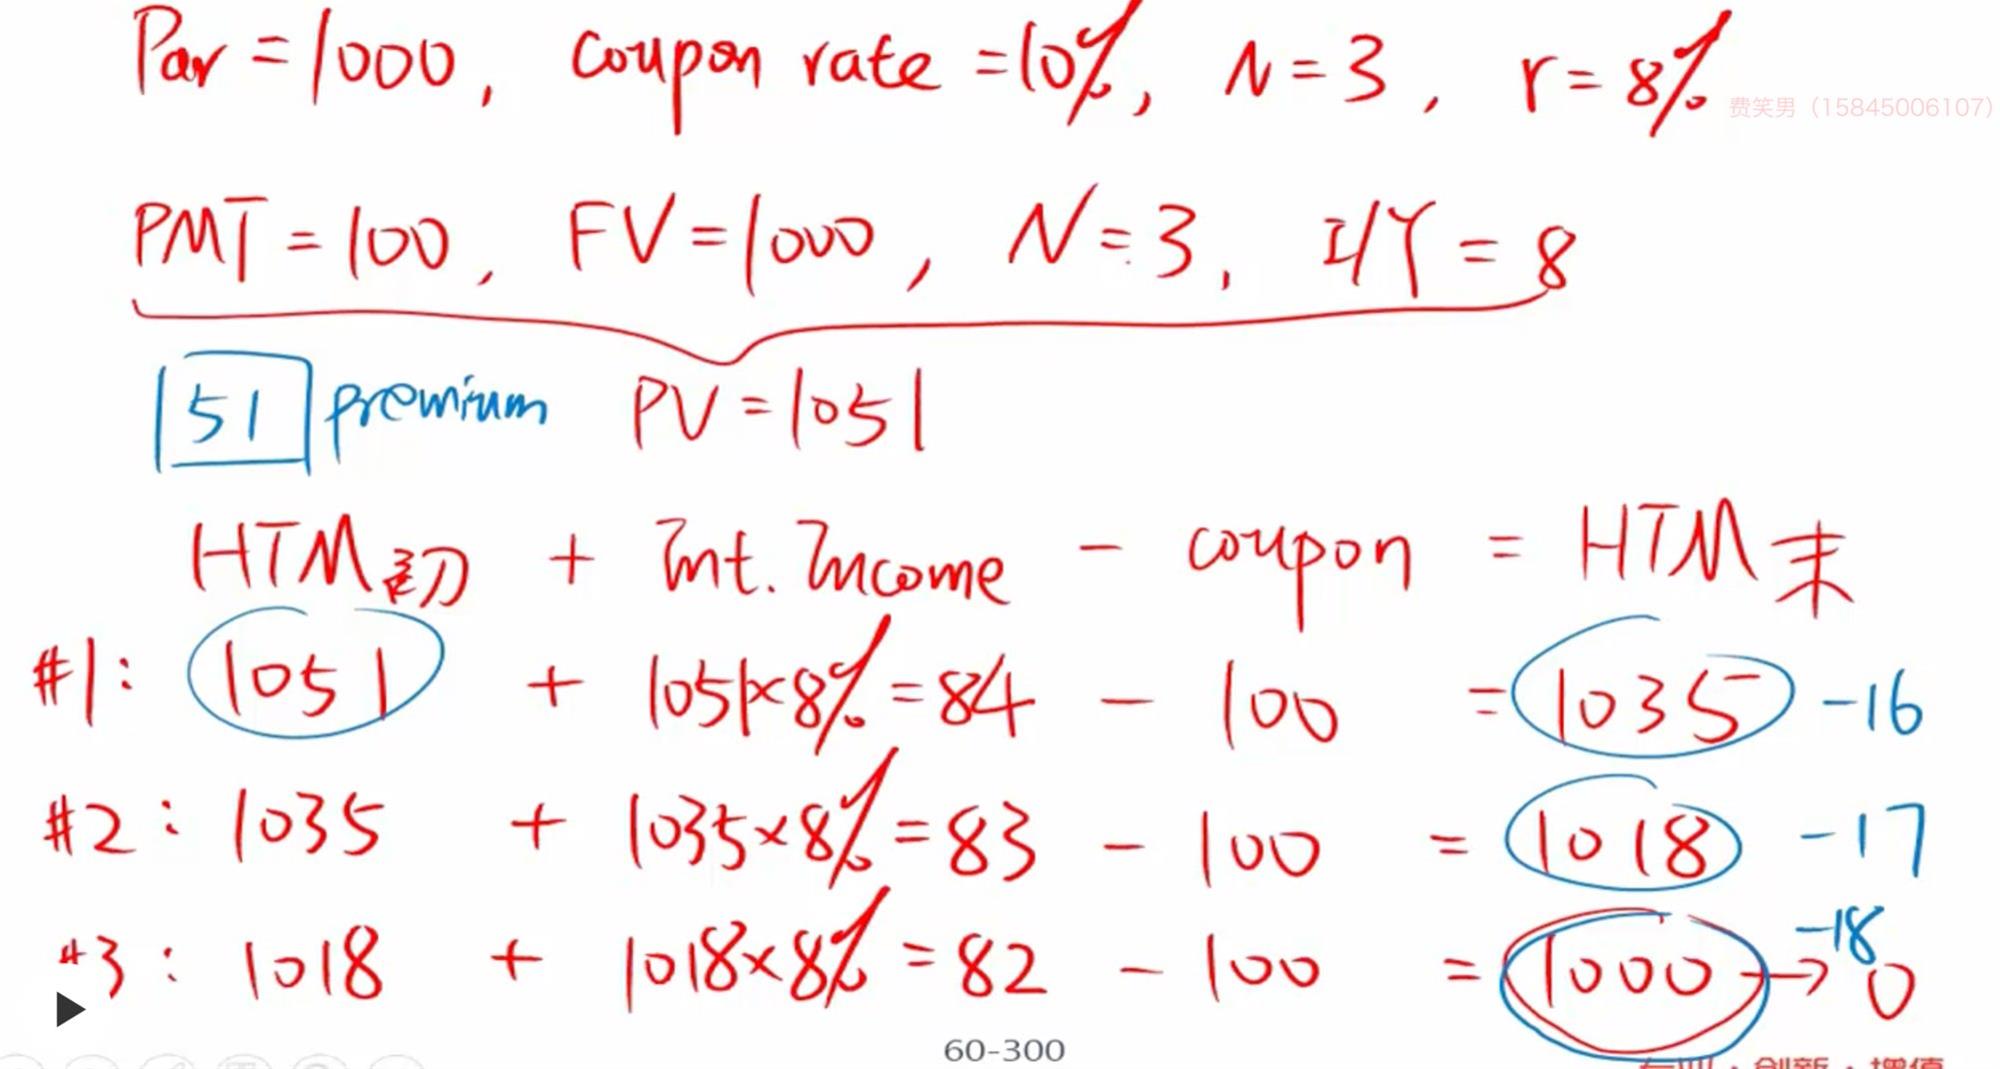 Par = 1000, coupon rate = 10%, N = 3, r = 8%
费笑男（15845006107）
PMT = 100, FV = 1000, N = 3, I/Y = 8
51 premium PV = 1051
HTM初 + Int. Income - coupon = HTM末
#1: 1051 + 1051×8% = 84 - 100 = 1035 -16
#2: 1035 + 1035×8% = 83 - 100 = 1018 -17
#3: 1018 + 1018×8% = 82 - 100 = 1000 → 0 -18
60-300
专业·创新·增值